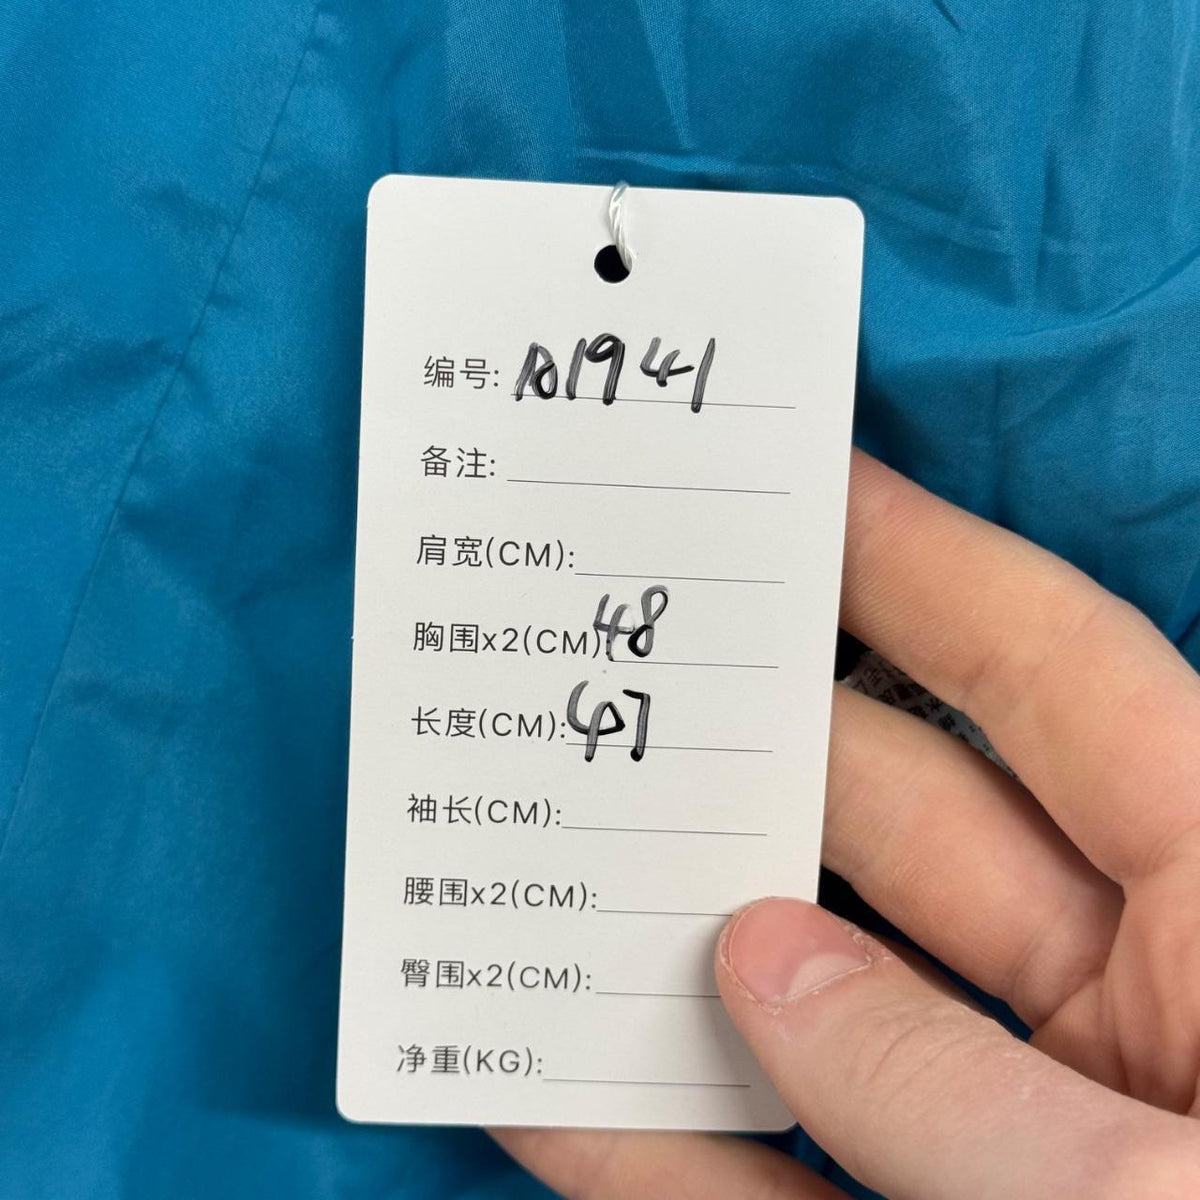 编号: D1941
备注:
肩宽(CM):
胸围x2(CM): 48
长度(CM): 47
袖长(CM):
腰围x2(CM):
臀围x2(CM):
净重(KG):